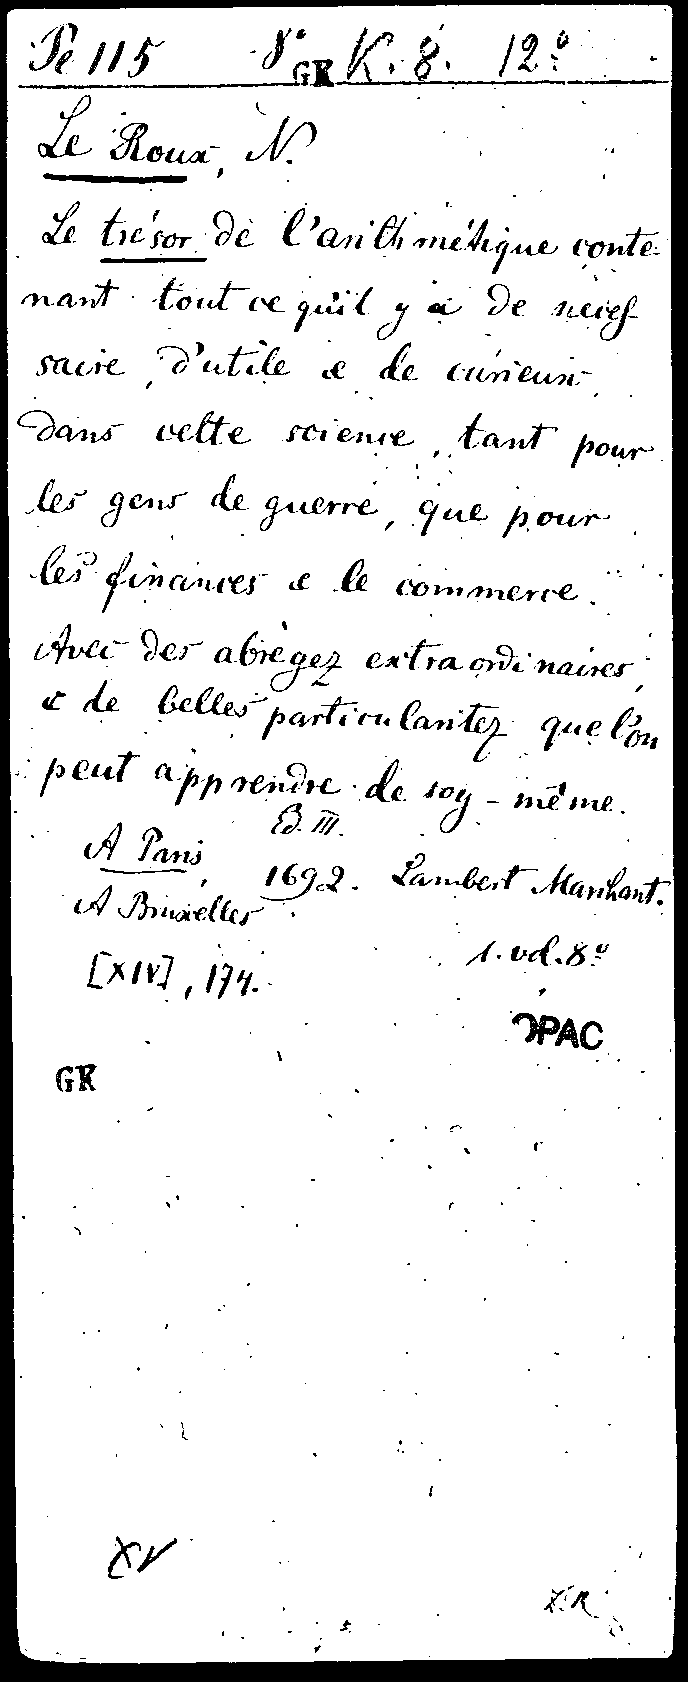 Pe 115 8° GK K. 8. 12°
Le Roux, N.
Le trésor de l'arithmétique conte-
nant tout ce qu'il y a de néces-
saire, d'utile & de curieux
dans cette science, tant pour
les gens de guerre, que pour
les finances & le commerce.
Avec des abrègez extraordinaires,
& de belles particularitez que l'on
peut apprendre de soy-même.
Ed. III.
A Paris,
1692. Lambert Marchant.
A Bruxelles
1. vol. 8°
[XIV], 174.
OPAC
GK
XV